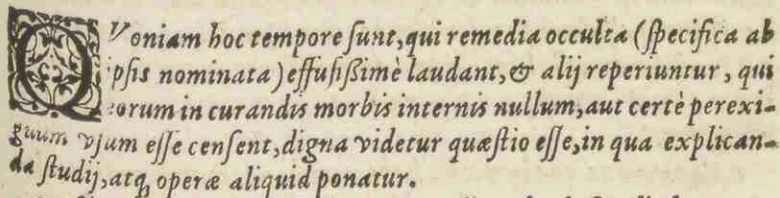 QVoniam hoc tempore sunt, qui remedia occulta (specifica ab
ipsis nominata) effusissimè laudant, & alij reperiuntur, qui
eorum in curandis morbis internis nullum, aut certè perexi-
guum vsum esse censent, digna videtur quæstio esse, in qua explican-
da studij, atq; operæ aliquid ponatur.